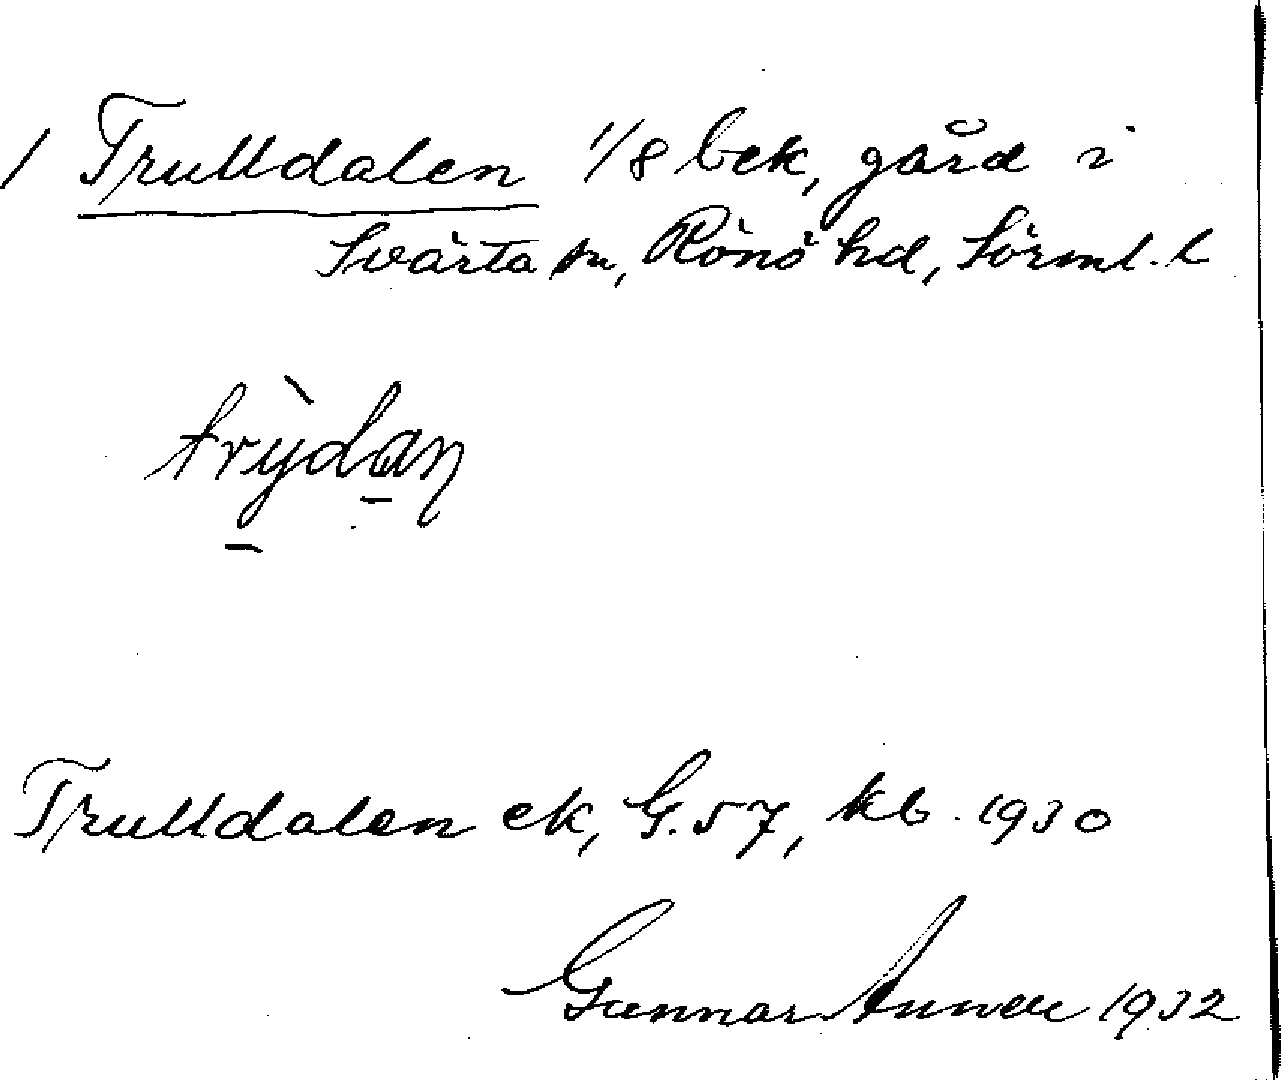 / Trulldalen 1/8 bek, gård i
Svärta sn, Rönö hd, Sörml. l
trỳdaṉ
Trulldalen ek, G.57, kb. 1930
Gunnar 1932